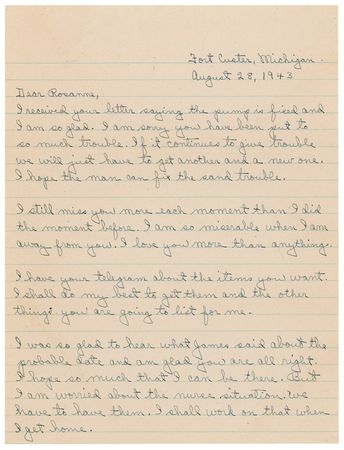 Fort Custer, Michigan.
August 28, 1943
Dear Rosanne,
I received your letter saying the pump is fixed and
I am so glad. I am sorry you have been put to
so much trouble. If it continues to give trouble
we will just have to get another and a new one.
I hope the man can fix the sand trouble.
I still miss you more each moment than I did
the moment before. I am so miserable when I am
away from you. I love you more than anything.
I have your telegram about the items you want.
I shall do my best to get them and the other
things you are going to list for me.
I was so glad to hear what James said about the
probable date and am glad you are all right.
I hope so much that I can be there. But
I am worried about the nurse situation. We
have to have them. I shall work on that when
I get home.